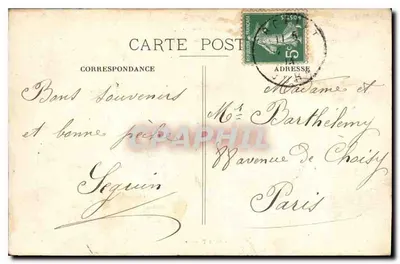 CARTE POST
CORRESPONDANCE
ADRESSE
5c
Bons souvenirs
et bonne pêche
Seguin
Madame et
Mr Barthélémy
88 avenue de Choisy
Paris
CPAPHIL